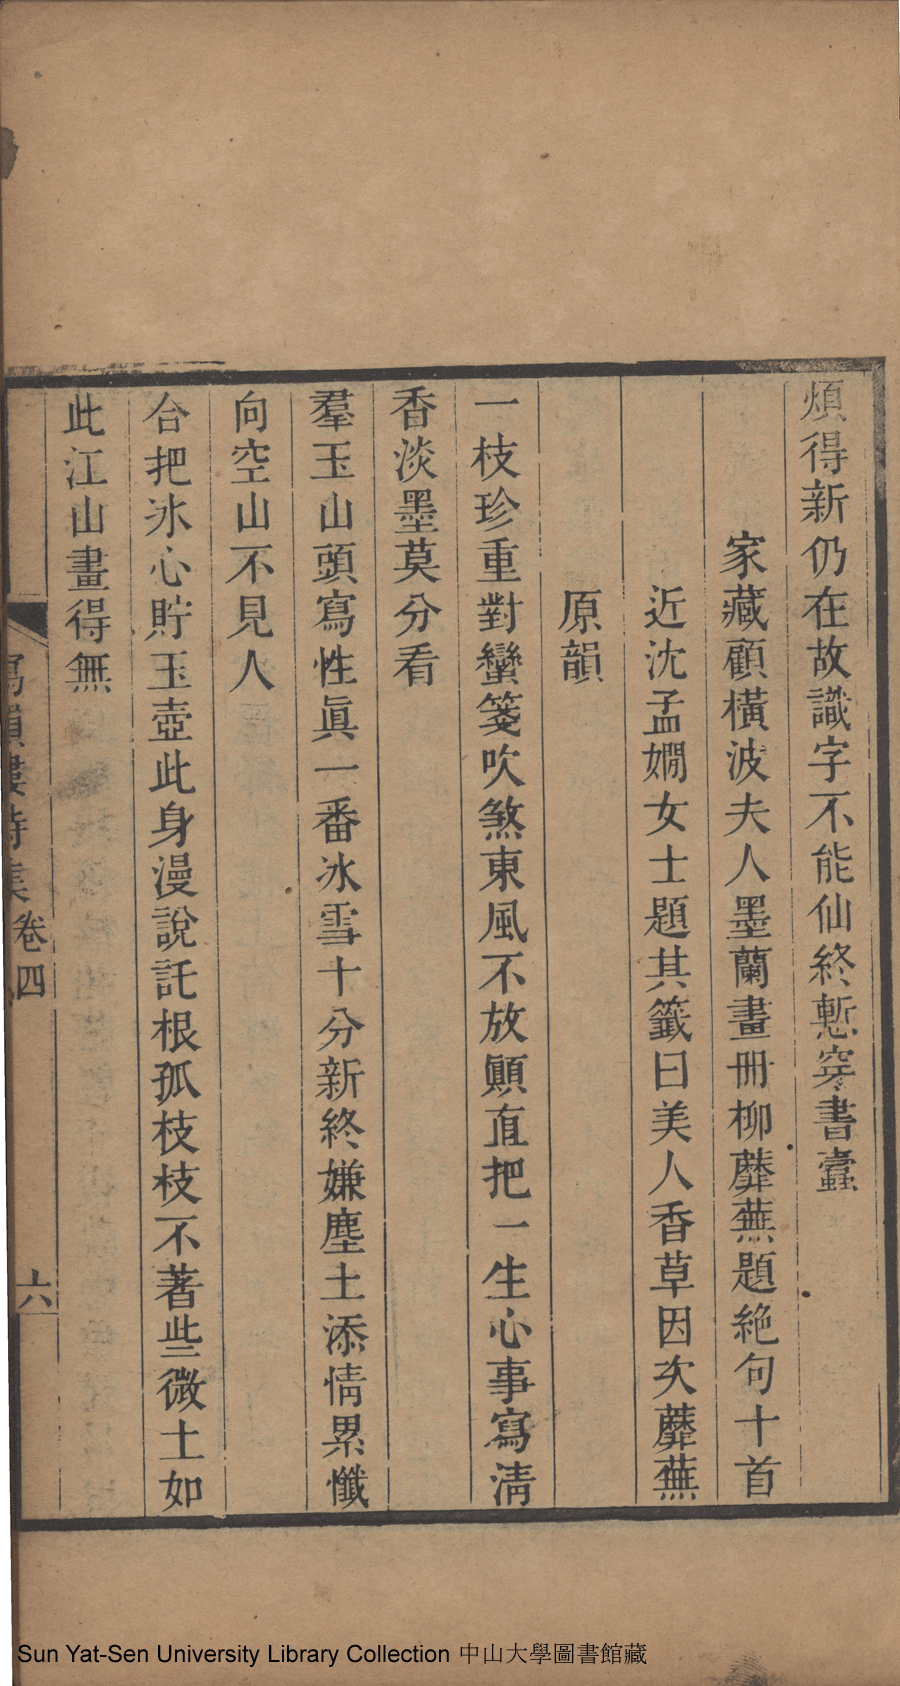 煩得新仍在故識字不能仙終慙穿書蠧
家藏顧橫波夫人墨蘭畫冊柳蘼蕪題絕句十首
近沈孟嫺女士題其籤曰美人香草因次蘼蕪
原韻
一枝珍重對蠻箋吹煞東風不放顚直把一生心事寫淸
香淡墨莫分看
羣玉山頭寫性眞一番冰雪十分新終嫌塵土添情累懺
向空山不見人
合把冰心貯玉壺此身漫說託根孤枝枝不著些微土如
此江山畫得無
寫韻樓詩集卷四
六
Sun Yat-Sen University Library Collection 中山大學圖書館藏